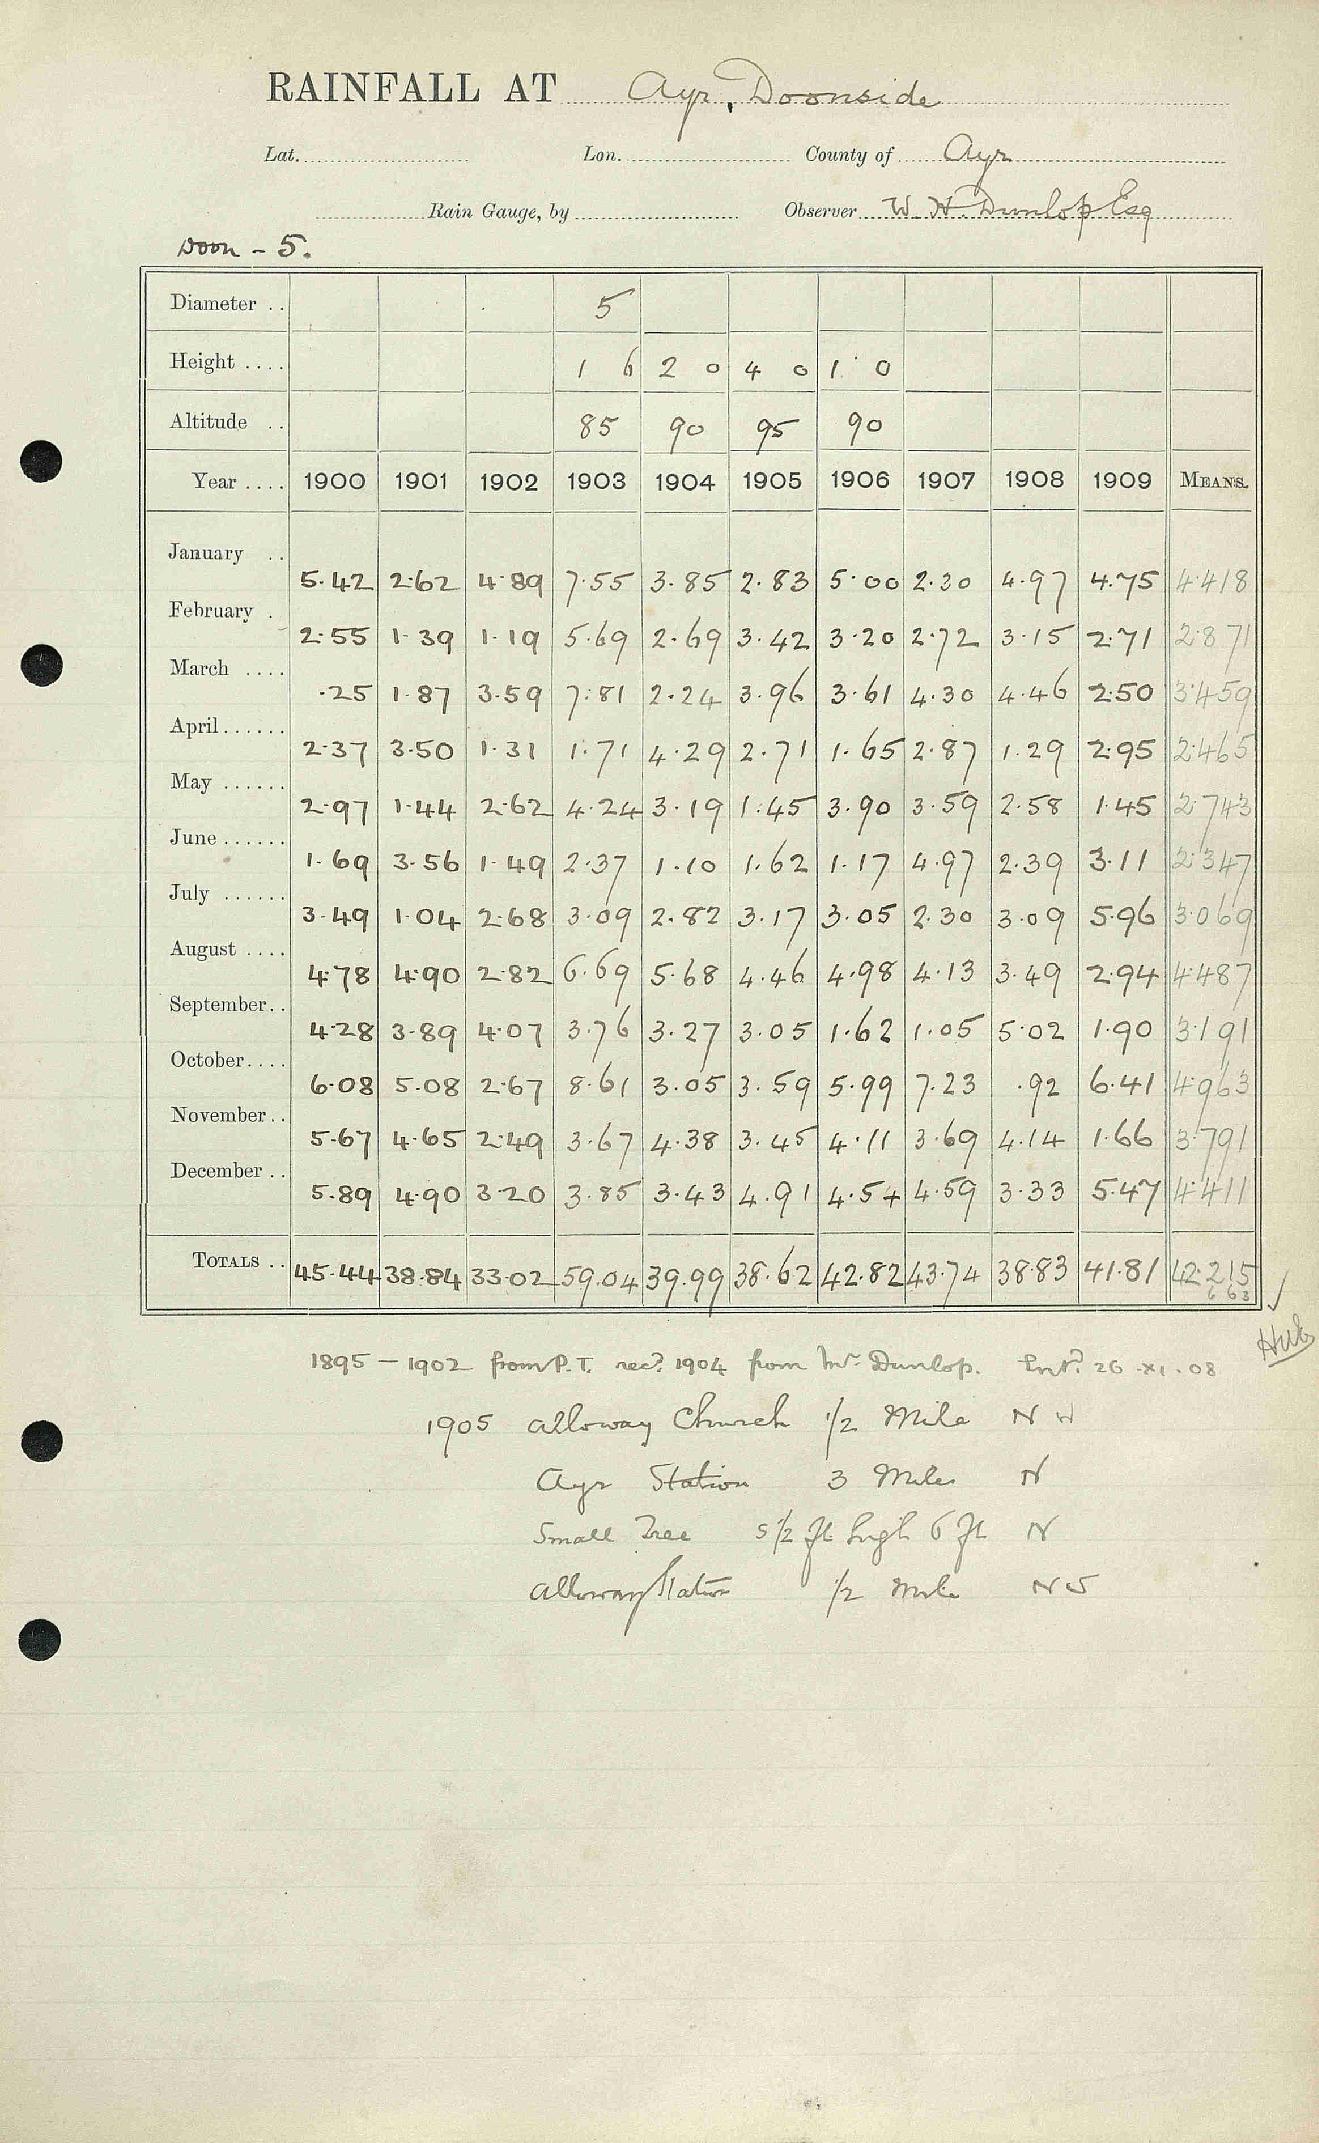 RAINFALL AT Ayr, Doonside
Lat. Lon. County of Ayr
Rain Gauge, by Observer W. H. Dunlop Esq
Doon - 5.
Diameter .. 5
Height .... 1 6 2 0 4 0 1 0
Altitude .. 85 90 95 90
Year .... 1900 1901 1902 1903 1904 1905 1906 1907 1908 1909 MEANS.
January .. 5.42 2.62 4.89 7.55 3.85 2.83 5.00 2.30 4.97 4.75 4.418
February . 2.55 1.39 1.19 5.69 2.69 3.42 3.20 2.72 3.15 2.71 2.871
March .... .25 1.87 3.59 7.81 2.24 3.96 3.61 4.30 4.46 2.50 3.459
April...... 2.37 3.50 1.31 1.71 4.29 2.71 1.65 2.87 1.29 2.95 2.465
May ...... 2.97 1.44 2.62 4.24 3.19 1.45 3.90 3.59 2.58 1.45 2.743
June ...... 1.69 3.56 1.49 2.37 1.10 1.62 1.17 4.97 2.39 3.11 2.347
July ...... 3.49 1.04 2.68 3.09 2.82 3.17 3.05 2.30 3.09 5.96 3.069
August .... 4.78 4.90 2.82 6.69 5.68 4.46 4.98 4.13 3.49 2.94 4.487
September.. 4.28 3.89 4.07 3.76 3.27 3.05 1.62 1.05 5.02 1.90 3.191
October.... 6.08 5.08 2.67 8.61 3.05 3.59 5.99 7.23 .92 6.41 4.963
November.. 5.67 4.65 2.49 3.67 4.38 3.45 4.11 3.69 4.14 1.66 3.791
December .. 5.89 4.90 3.20 3.85 3.43 4.91 4.54 4.59 3.33 5.47 4.411
TOTALS .. 45.44 38.84 33.02 59.04 39.99 38.62 42.82 43.74 38.83 41.81 42.215
6 63
1895 - 1902 from P.T. recd. 1904 from Mr. Dunlop. Entd. 26.XI.08
1905 Alloway Church 1/2 Mile N W
Ayr Station 3 Miles N
Small Tree 5 1/2 ft high 6 ft N
Alloway Station 1/2 Mile N